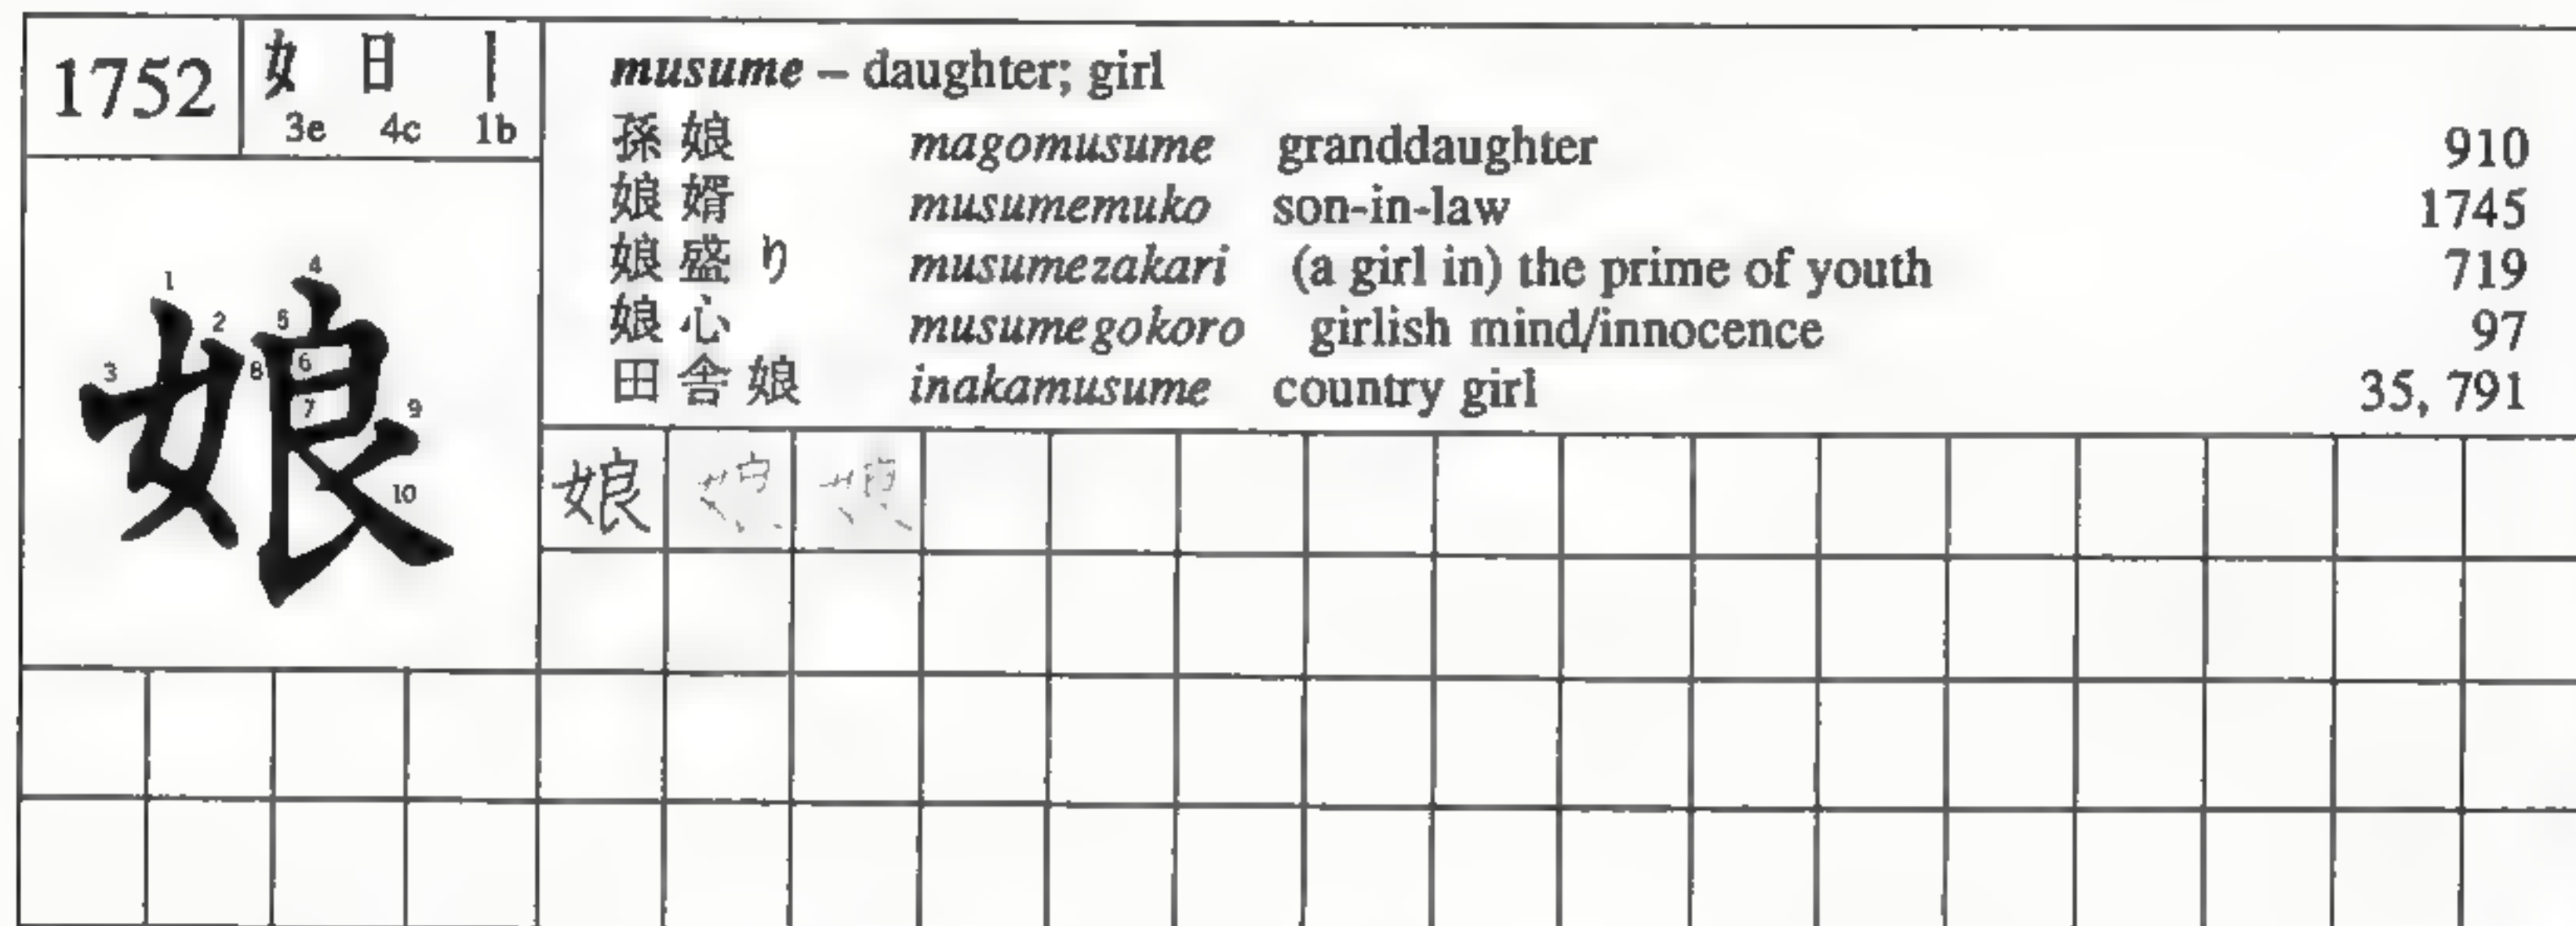 1752
女 日 |
3e 4c 1b
musume – daughter; girl
孫娘 magomusume granddaughter 910
娘婿 musumemuko son-in-law 1745
娘盛り musumezakari (a girl in) the prime of youth 719
娘心 musumegokoro girlish mind/innocence 97
田舎娘 inakamusume country girl 35, 791
娘
1 2 3 4 5 6 7 8 9 10
娘 娘 娘